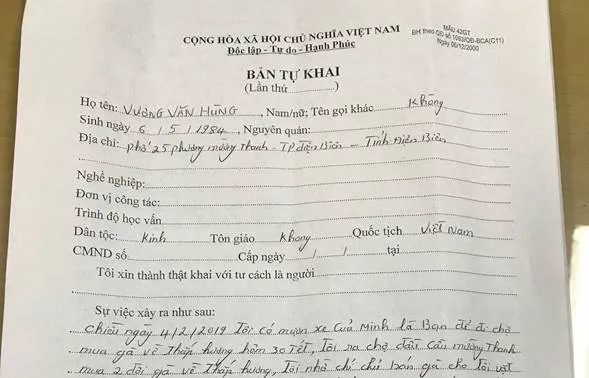 CỘNG HÒA XÃ HỘI CHỦ NGHĨA VIỆT NAM
Độc lập - Tự do - Hạnh Phúc
MẪU 42GT
BH theo QĐ số 1093/QĐ-BCA(C11)
Ngày 06/12/2000
BẢN TỰ KHAI
(Lần thứ ..............)
Họ tên: VƯƠNG VĂN HÙNG, Nam/nữ; Tên gọi khác Không
Sinh ngày 6 / 5 / 1984, Nguyên quán:
Địa chỉ: phố 25 phường mường Thanh - TP điện Biên - Tỉnh Điện Biên
Nghề nghiệp:
Đơn vị công tác:
Trình độ học vấn
Dân tộc: Kinh Tôn giáo không Quốc tịch Việt Nam
CMND số Cấp ngày / / tại
Tôi xin thành thật khai với tư cách là người
Sự việc xảy ra như sau:
Chiều ngày 4/2/2019 Tôi có mượn xe Của Minh là Bạn để đi chợ
mua gà về Thắp hương hôm 30 TẾT, Tôi ra chợ đầu Cầu mường Thanh
mua 2 đôi gà về Thắp hương, Tôi nhờ chị chủ bán gà cho Tôi vặt